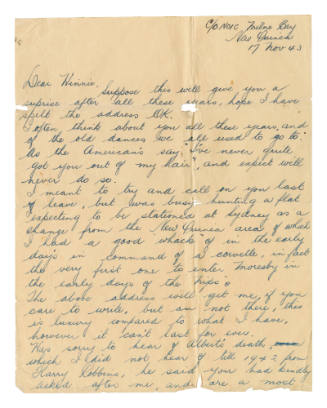 C/o NOIC Milne Bay
New Guinea
17 Nov 43
Dear Winnie,
Suppose this will give you a
suprise after all these years, hope I have
spelt the address OK.
I often think about you all these years, and
of the old dances we all used to go to.
As the American's say "I've never quite
got you out of my hair", and expect will
never do so.
I meant to try and call on you last
leave, but was busy hunting a flat
expecting to be stationed at Sydney as a
change from the New Guinea area, of which
I had a good whack of in the early
days in command of a corvette, in fact
the very first one to enter Moresby in
the early days of the Nips.
The above address will get me, if you
care to write, but am not there, this
is luxury compared to what I have,
however it can't last for ever.
Was sorry to hear of Albert's death,
which I did not hear of till 1942 from
Harry Robbins, he said you had kindly
asked after me, and are a most